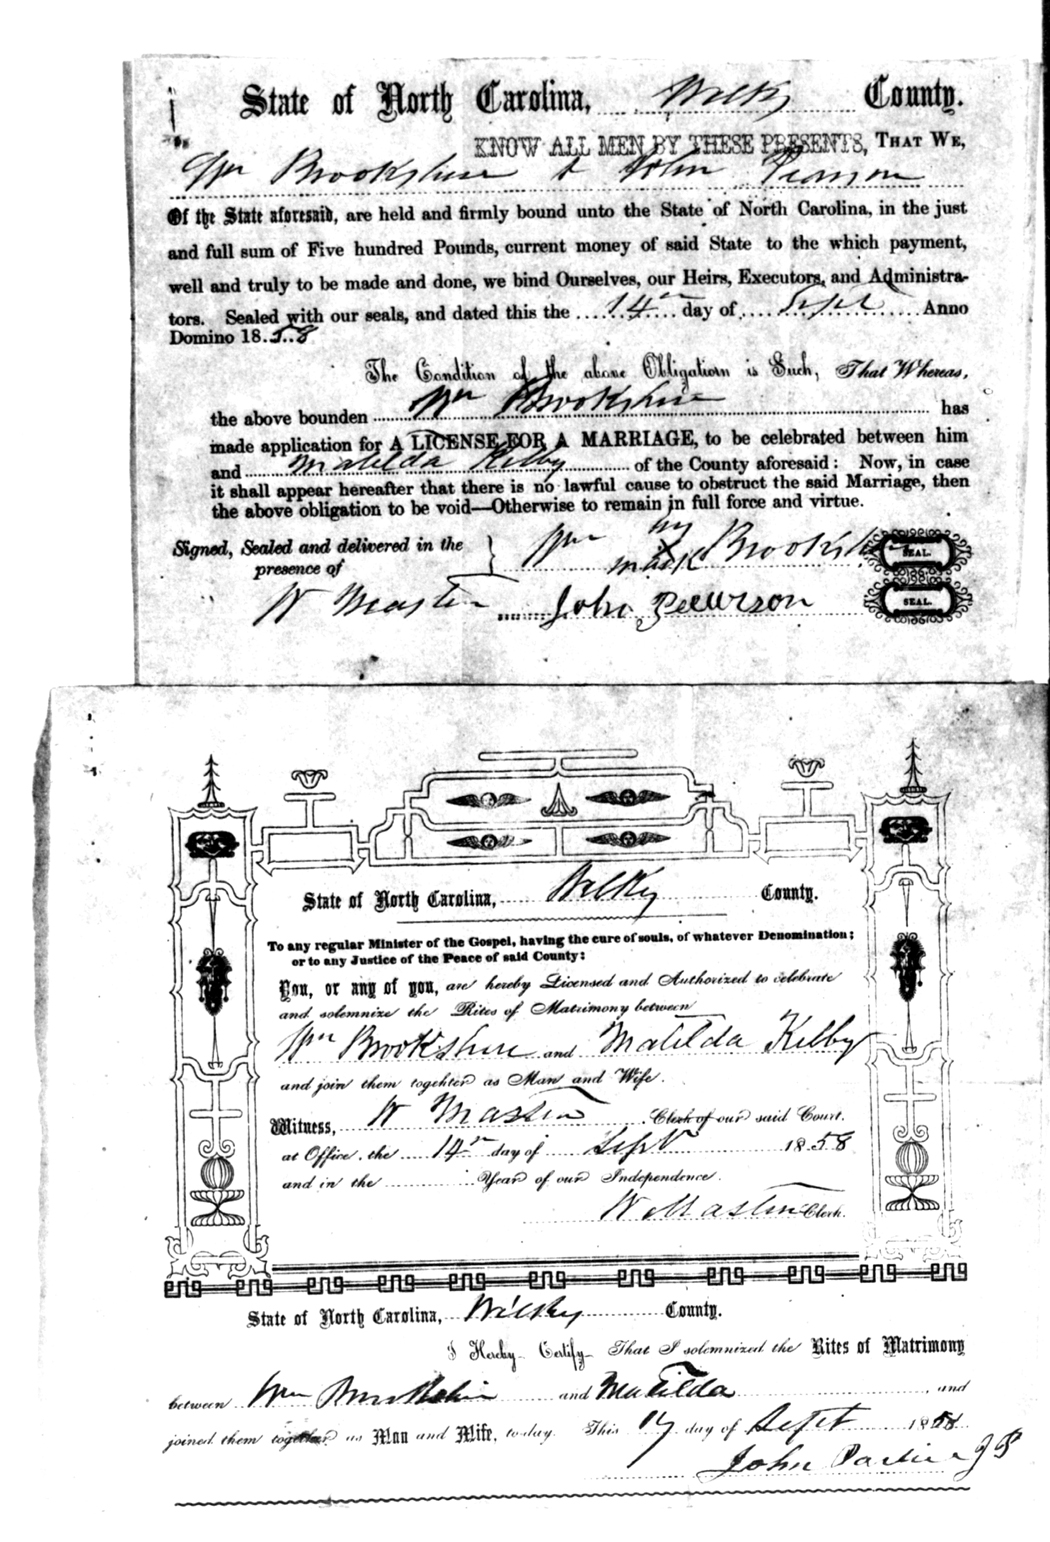 State of North Carolina, Wilks County.
KNOW ALL MEN BY THESE PRESENTS, THAT WE,
Wm Brookshire & John Pearson
Of the State aforesaid, are held and firmly bound unto the State of North Carolina, in the just
and full sum of Five hundred Pounds, current money of said State to the which payment,
well and truly to be made and done, we bind Ourselves, our Heirs, Executors, and Administra-
tors. Sealed with our seals, and dated this the 14th day of Sept Anno
Domino 1858
The Condition of the above Obligation is Such, That Whereas,
the above bounden Wm Brookshire has
made application for A LICENSE FOR A MARRIAGE, to be celebrated between him
and Matilda Kelby of the County aforesaid: Now, in case
it shall appear hereafter that there is no lawful cause to obstruct the said Marriage, then
the above obligation to be void—Otherwise to remain in full force and virtue.
Signed, Sealed and delivered in the
presence of
Wm his X mark Brookshire SEAL.
W Mastin John Pearson SEAL.
State of North Carolina, Wilks County.
To any regular Minister of the Gospel, having the cure of souls, of whatever Denomination;
or to any Justice of the Peace of said County:
You, or any of you, are hereby Licensed and Authorized to celebrate
and solemnize the Rites of Matrimony between
Wm Brookshire and Matilda Kelby
and join them togehter as Man and Wife.
Witness, W Mastin Clerk of our said Court.
at Office, the 14th day of Sept 1858
and in the Year of our Independence.
W Mastin Clerk.
State of North Carolina, Wilks County.
I Hereby Certify That I solemnized the Rites of Matrimony
between Wm Brookshire and Matilda , and
joined them together as Man and Wife, to-day. This 17 day of Sept 1858
John JP